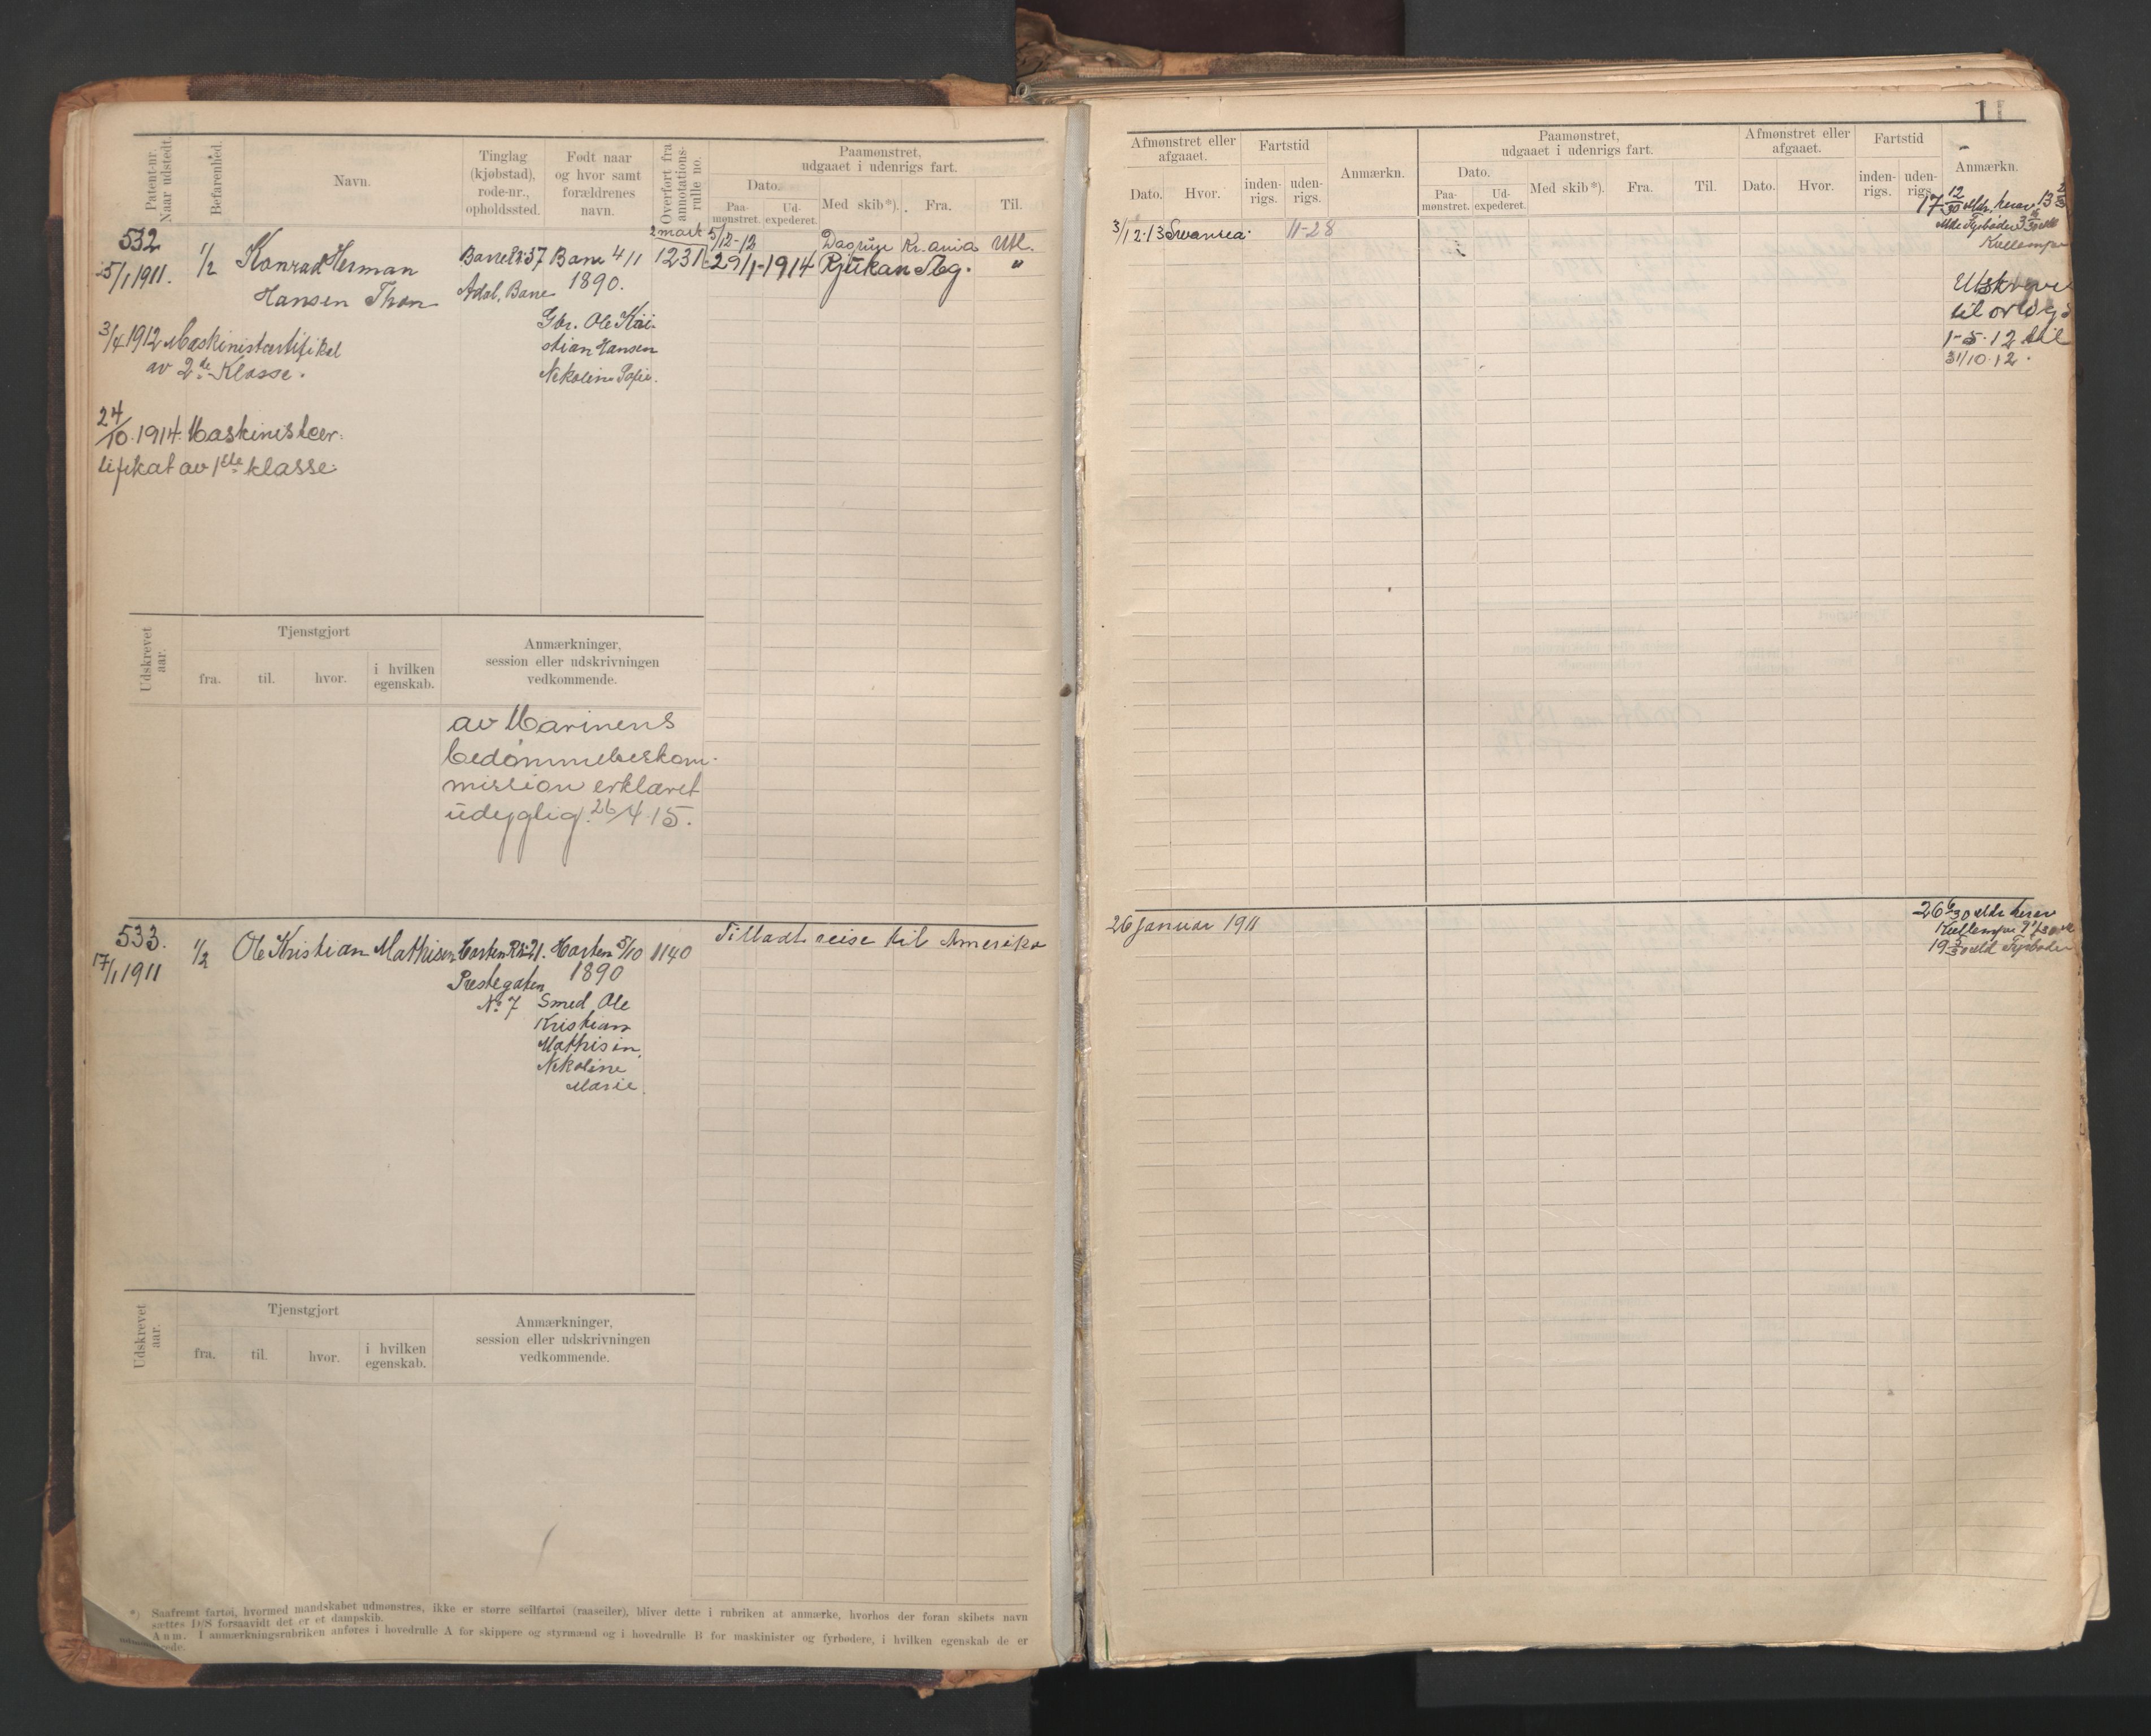 Patent-nr. Naar udstedt.
Befarenhed.
Navn.
Tinglag (kjøbstad), rode-nr., opholdssted.
Født naar og hvor samt forældrenes navn.
Overført fra annotations-rulle no.
Paamønstret, udgaaet i udenrigs fart.
Dato.
Paa-mønstret.
Ud-expederet.
Med skib*).
Fra.
Til.
532
5/1 1911.
1/2
Konrad Herman
Hansen Thon
Adal, Borre
1890.
Ole Kri-
stian Hansen
1231
5/12-12
Kr.ania
Utl.
29/1-1914
Rjukan
Tbg.
"
3/4 1912 Maskinistcertifikat
av 2de Klasse.
24/10.1914. Maskinistcer-
tifikat av 1ste klasse.
Udskrevet aar.
Tjenstgjort
fra.
til.
hvor.
i hvilken egenskab.
Anmærkninger, session eller udskrivningen vedkommende.
av Marinens
bedømmelseskom-
mission erklæret
udygtig. 26/4.15.
533.
17/1 1911
1/2
Ole Kristian Mathisen
Horten
Horten 5/10
1890
1140
Prestegaten
No 7
Smed Ole
Kristian
Mathisen,
Nikoline
Marie.
Tilladt reise til Amerika
Udskrevet aar.
Tjenstgjort
fra.
til.
hvor.
i hvilken egenskab.
Anmærkninger, session eller udskrivningen vedkommende.
*) Saafremt fartøi, hvormed mandskabet udmønstres, ikke er større seilfartøi (raaseiler), bliver dette i rubriken at anmærke, hvorhos der foran skibets navn
sættes D/S forsaavidt det er et dampskib.
Anm. I anmærkningsrubriken anføres i hovedrulle A for skippere og styrmænd og i hovedrulle B for maskinister og fyrbødere, i hvilken egenskab de er
11
Afmønstret eller afgaaet.
Dato.
Hvor.
Fartstid
inden-rigs.
uden-rigs.
Anmærkn.
Paamønstret, udgaaet i udenrigs fart.
Dato.
Paa-mønstret.
Ud-expederet.
Med skib*).
Fra.
Til.
Afmønstret eller afgaaet.
Dato.
Hvor.
Fartstid
inden-rigs.
uden-rigs.
Anmærkn.
3/12.13
Swansea.
11-28
17 12/30 Mdr. herav 13
til orlogs
1-5.12 til
31/10.12.
26 januar 1911
26 6/30 Mdr herav